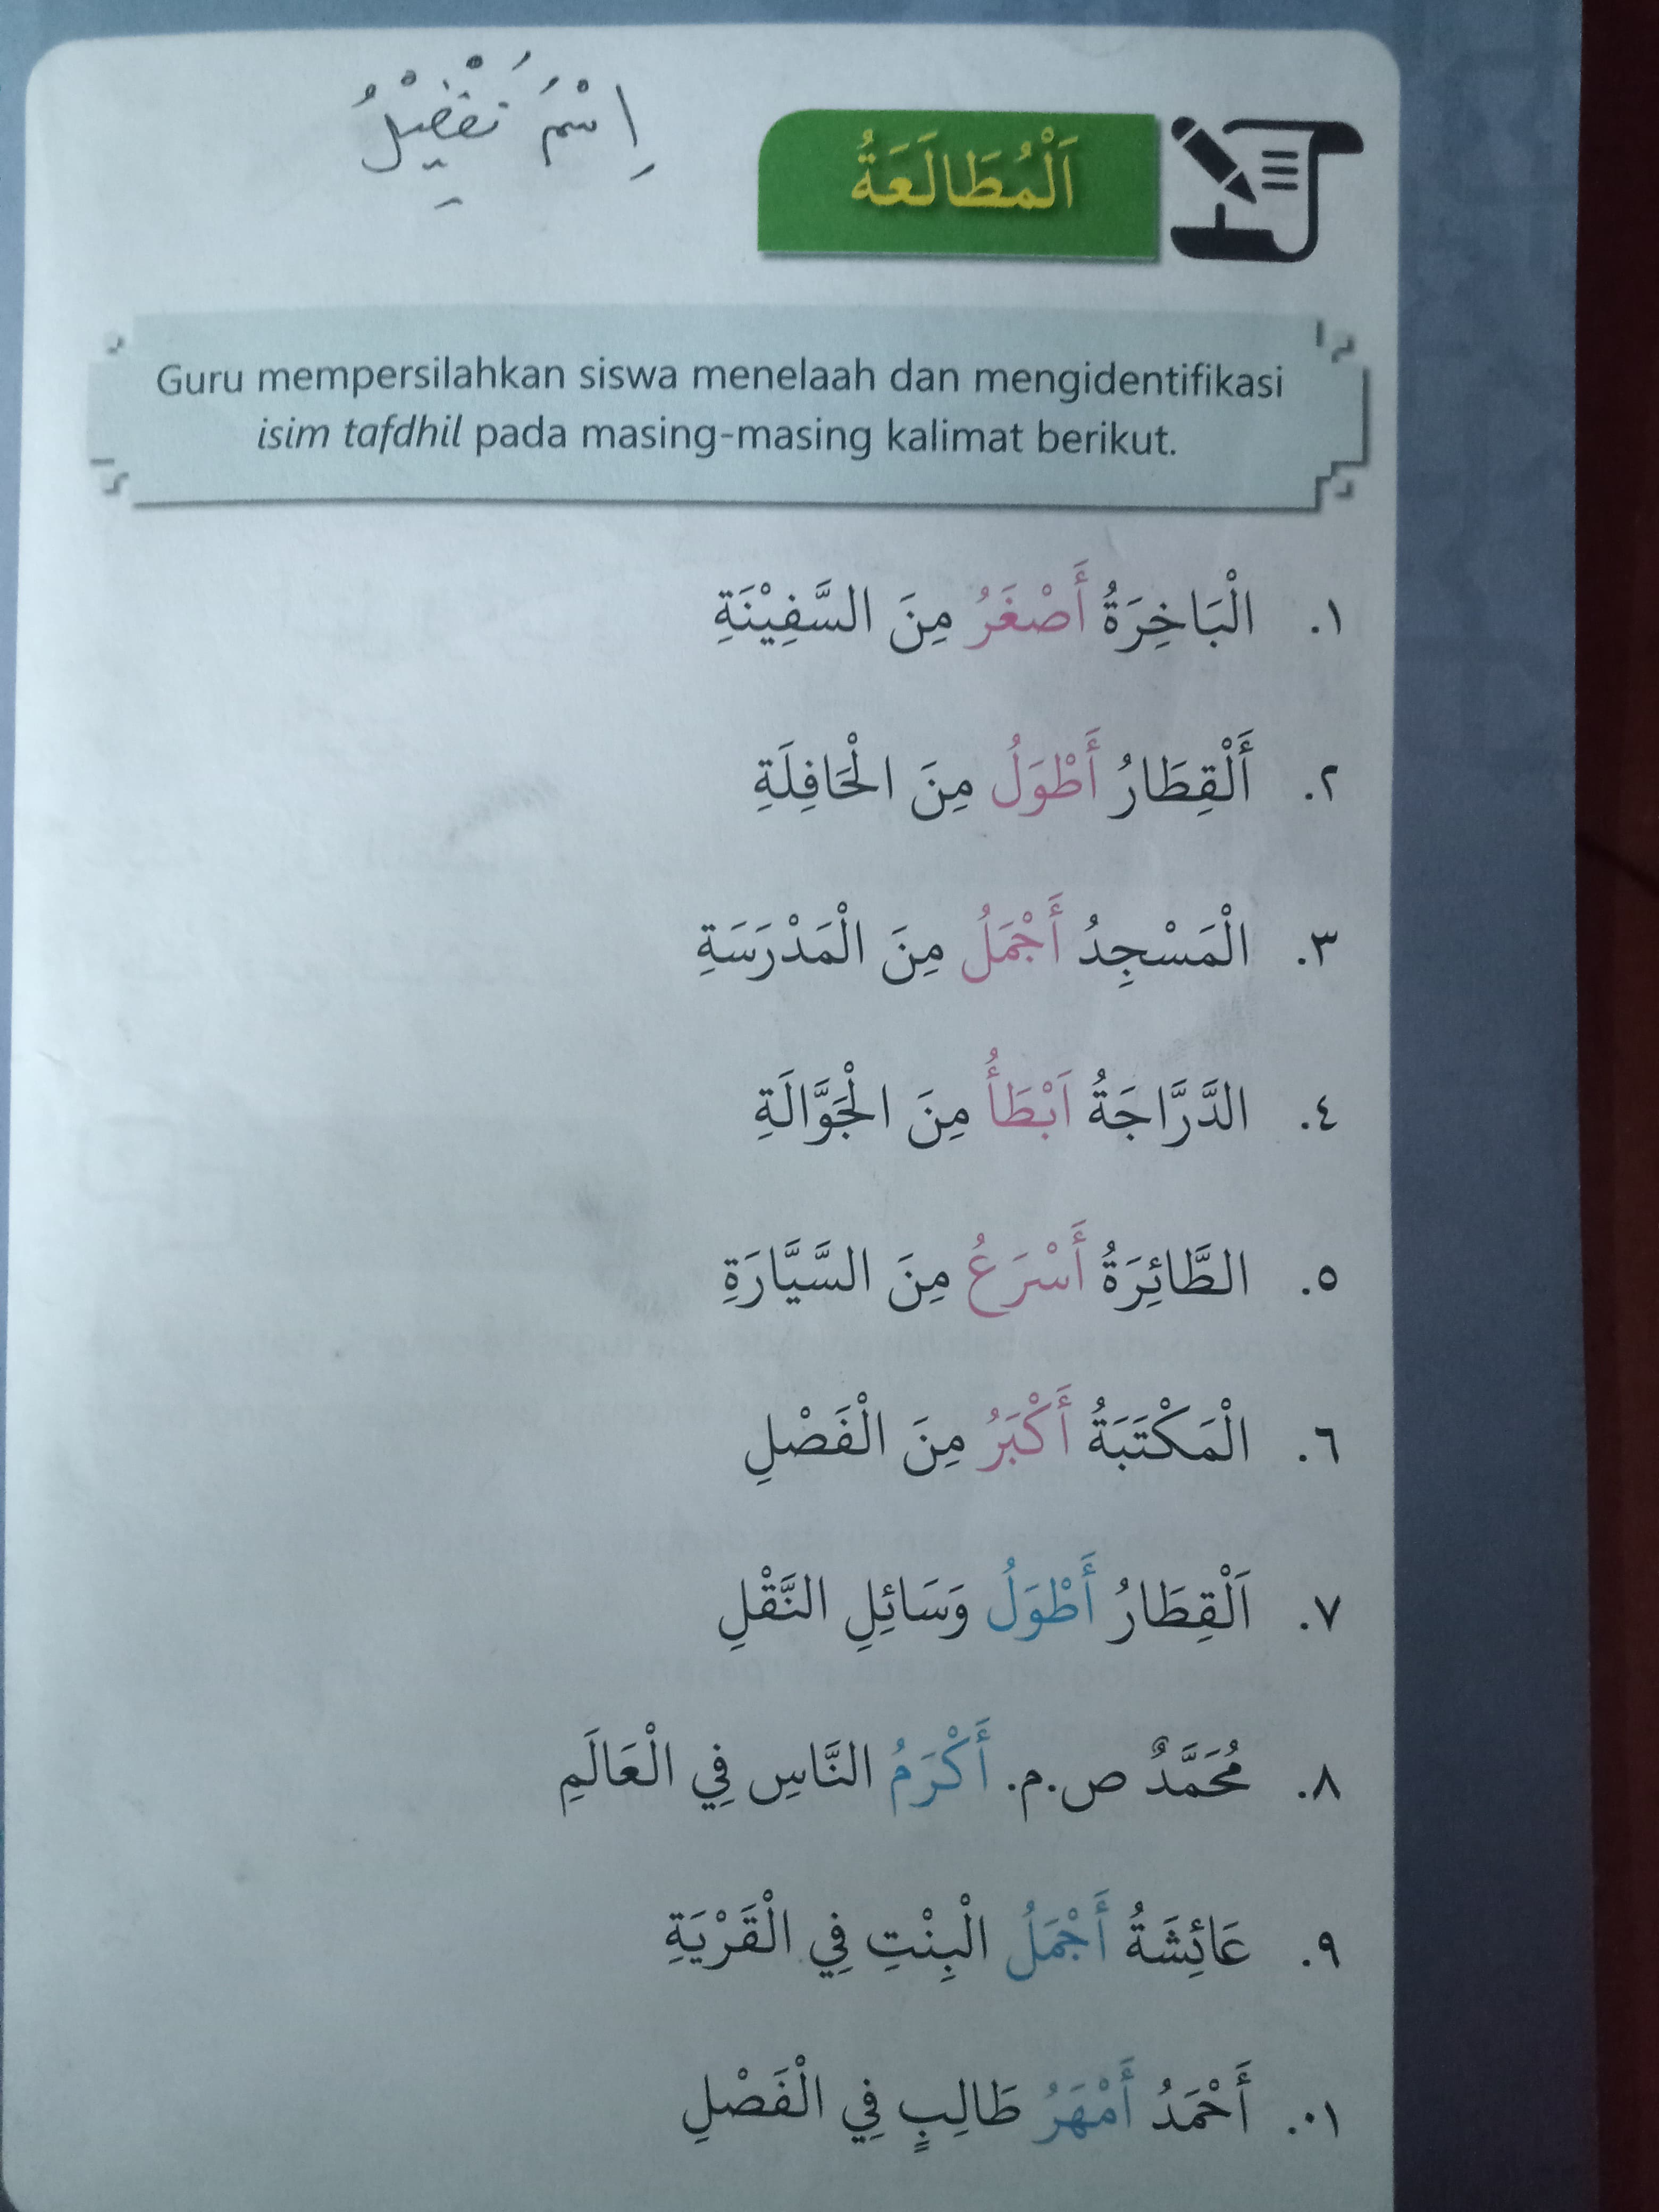 اِسْمُ تَفْضِيْلُ
اَلْمُطَالَعَةُ
Guru mempersilahkan siswa menelaah dan mengidentifikasi
isim tafdhil pada masing-masing kalimat berikut.
١. الْبَاخِرَةُ أَصْغَرُ مِنَ السَّفِيْنَةِ
٢. أَلْقِطَارُ أَطْوَلُ مِنَ الْحَافِلَةِ
٣. الْمَسْجِدُ أَجْمَلُ مِنَ الْمَدْرَسَةِ
٤. الدَّرَّاجَةُ اَبْطَأُ مِنَ الْجَوَّالَةِ
٥. الطَّائِرَةُ أَسْرَعُ مِنَ السَّيَّارَةِ
٦. الْمَكْتَبَةُ أَكْبَرُ مِنَ الْفَصْلِ
٧. اَلْقِطَارُ أَطْوَلُ وَسَائِلِ النَّقْلِ
٨. مُحَمَّدٌ ص.م. أَكْرَمُ النَّاسِ فِي الْعَالَمِ
٩. عَائِشَةُ أَجْمَلُ الْبِنْتِ فِي الْقَرْيَةِ
١٠. أَحْمَدُ أَمْهَرُ طَالِبٍ فِي الْفَصْلِ